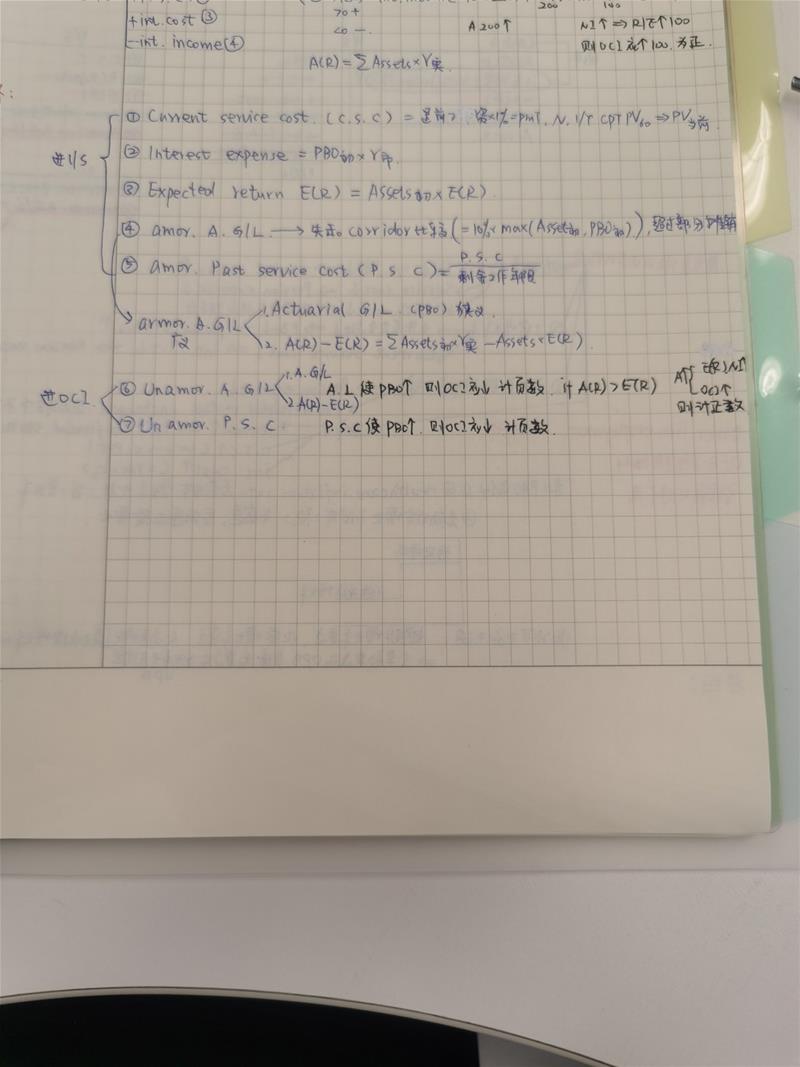 200 140
+int.cost ③ 70+ A 200↑ NI↑ ⇒ R/E↑100
-int. income ④ 20 - 则OCI亦↑100, 为正.
A(R) = ∑ Assets × r实.
① Current service cost. (C.S.C) = PMT, N, I/Y CPT PV60 ⇒ PV当前
进I/S
② Interest expense = PBO初 × r
③ Expected return E(R) = Assets初 × E(R)
④ amor. A.G/L. → 先和 corridor 比较 (=10% × max(Asset初, PBO初)), 超过部分摊销
⑤ amor. Past service cost (P.S.C) = P.S.C / 剩余工作年限
armor. A.G/L
1. Actuarial G/L. (PBO)
2. A(R) - E(R) = ∑Assets初×r实 - Assets×E(R).
进OCI
⑥ Unamor. A.G/L
1. A.G/L
2. A(R)-E(R)
A.L 使PBO↑ 则OCI亦↓ 计负数. if A(R) > E(R)
A↑ E(R) NI↑
OCI↑
则计正数
⑦ Unamor. P.S.C. P.S.C 使PBO↑, 则OCI亦↓ 计负数.